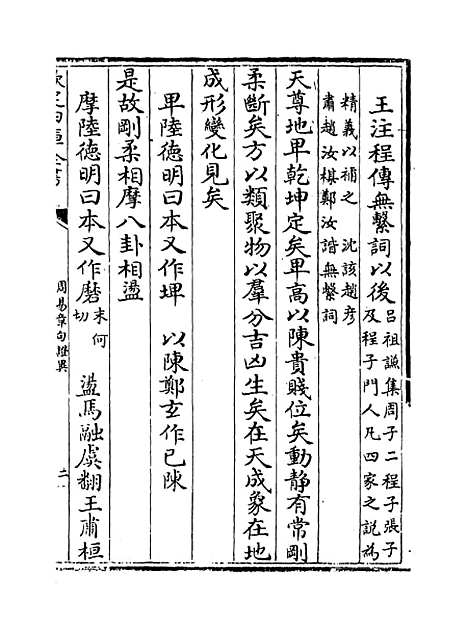 王注程傳無繫詞以後呂祖謙集周子二程子張子及程子門人凡四家之說為
精義以補之　沈該趙彥肅趙汝楳鄭汝諧無繫詞
天尊地卑乾坤定矣卑高以陳貴賤位矣動靜有常剛
柔斷矣方以類聚物以羣分吉凶生矣在天成象在地
成形變化見矣
卑陸德明曰本又作埤　以陳鄭玄作已陳
是故剛柔相摩八卦相盪
摩陸德明曰本又作磨末何切　盪馬融虞翻王肅桓
欽定四庫全書
周易章句證異
二